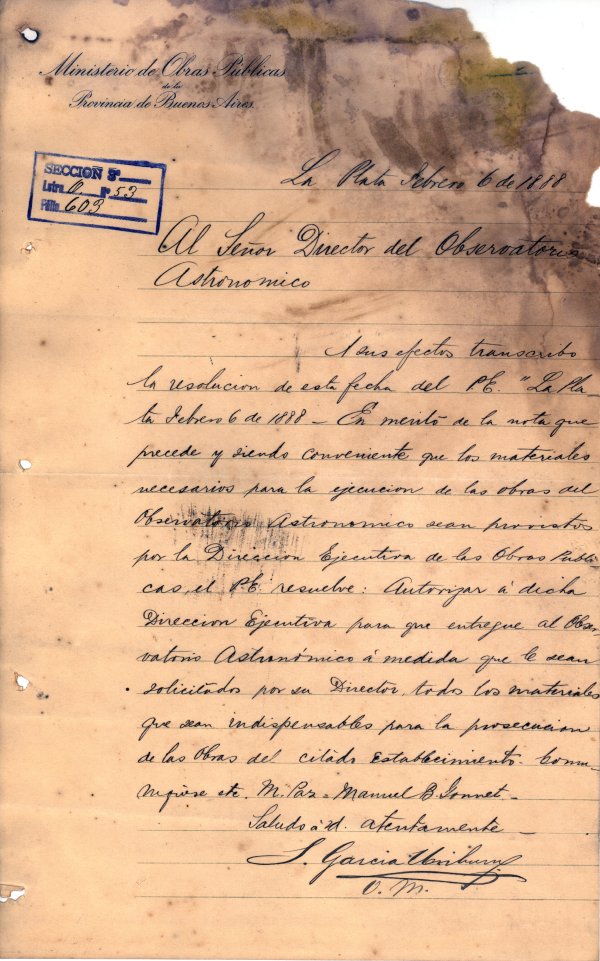 Ministerio de Obras Públicas
de la
Provincia de Buenos Aires.
SECCION 3ª
Letra O Nº 53
Fólio 603
La Plata Febrero 6 de 1888
Al Señor Director del Observatorio
Astronomico
A sus efectos transcribo
la resolucion de esta fecha del P.E. "La Pla-
ta Febrero 6 de 1888 - En merito de la nota que
precede y siendo conveniente que los materiales
necesarios para la ejecucion de las obras del
Observatorio Astronomico sean provistos
por la Direccion Ejecutiva de las Obras Publi-
cas, el P.E. resuelve: Autorizar á dicha
Direccion Ejecutiva para que entregue al Obser-
vatorio Astronómico á medida que le sean
solicitados por su Director, todos los materiales
que sean indispensables para la prosecucion
de las Obras del citado establecimiento. Comu-
niquese etc. M. Paz - Manuel B Gonnet -
Saludo á Vd. atentamente -
S. Garcia Uriburu
O. M.